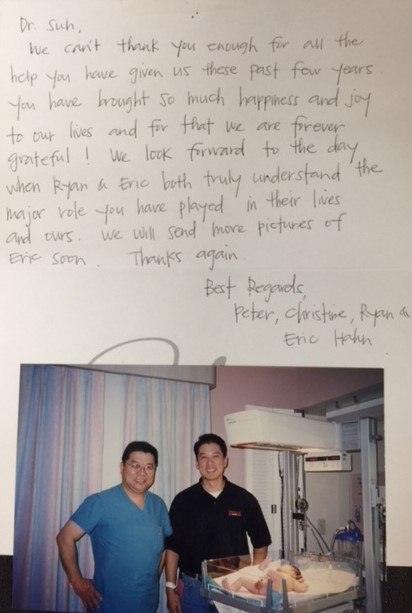 Dr. Suh,
We can't thank you enough for all the
help you have given us these past few years
you have brought so much happiness and joy
to our lives and for that we are forever
grateful! We look forward to the day
when Ryan & Eric both truly understand the
major role you have played in their lives
and ours. We will send more pictures of
Eric soon. Thanks again.
Best Regards,
Peter, Christine, Ryan &
Eric Hahn